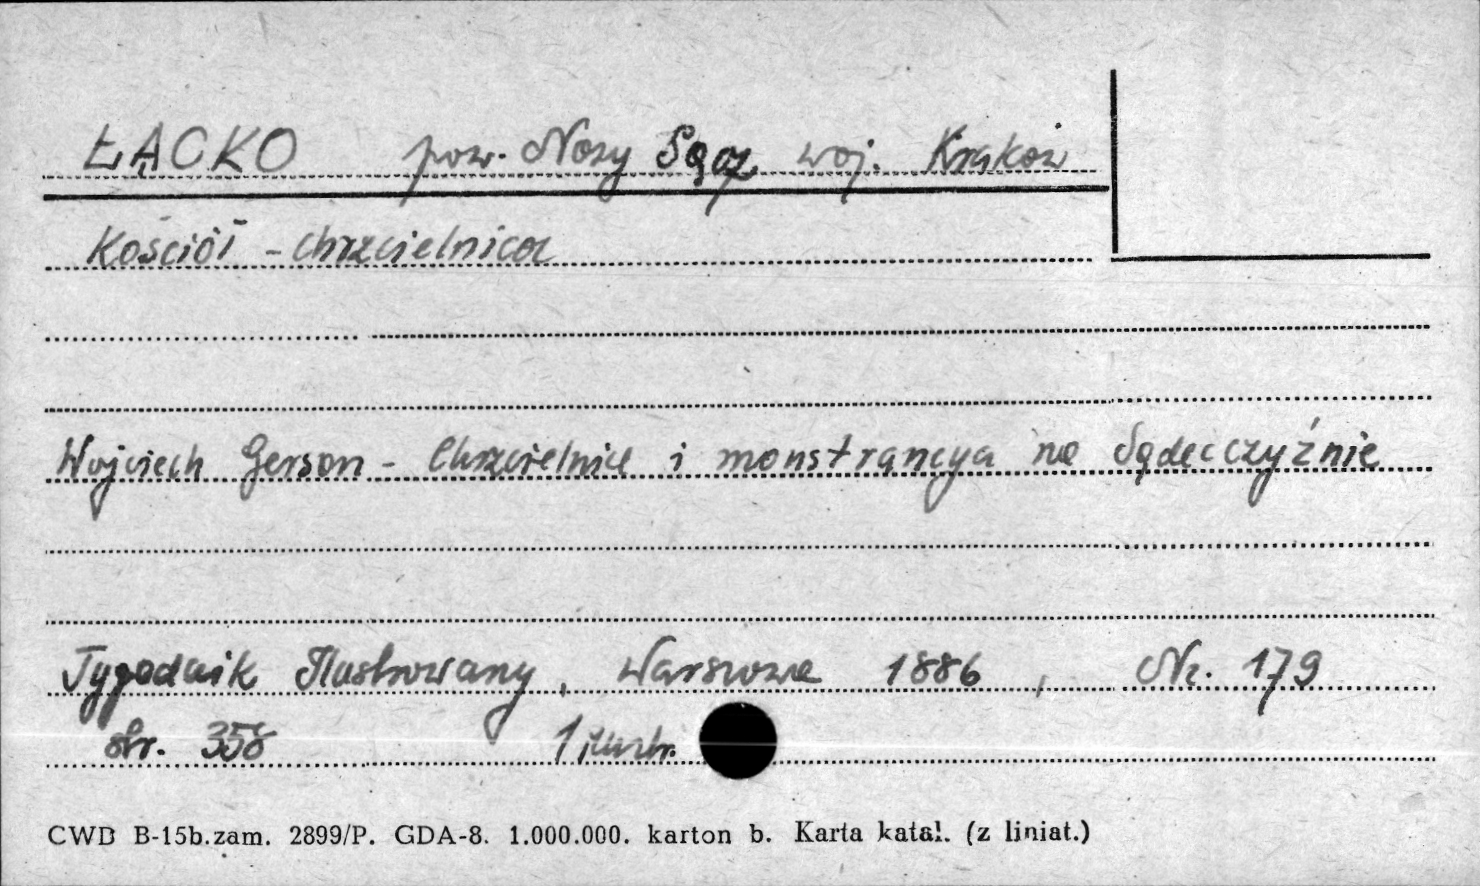 ŁĄCKO pow. Nowy Sącz woj. Kraków
Kościół - chrzcielnica
Wojciech Gerson - Chrzcielnice i monstrancya na Sądecczyźnie
Tygodnik Ilustrowany, Warszawa 1886, Nr. 179
str. 358 1 ilustr.
CWD B-15b.zam. 2899/P. GDA-8. 1.000.000. karton b. Karta katal. (z liniat.)